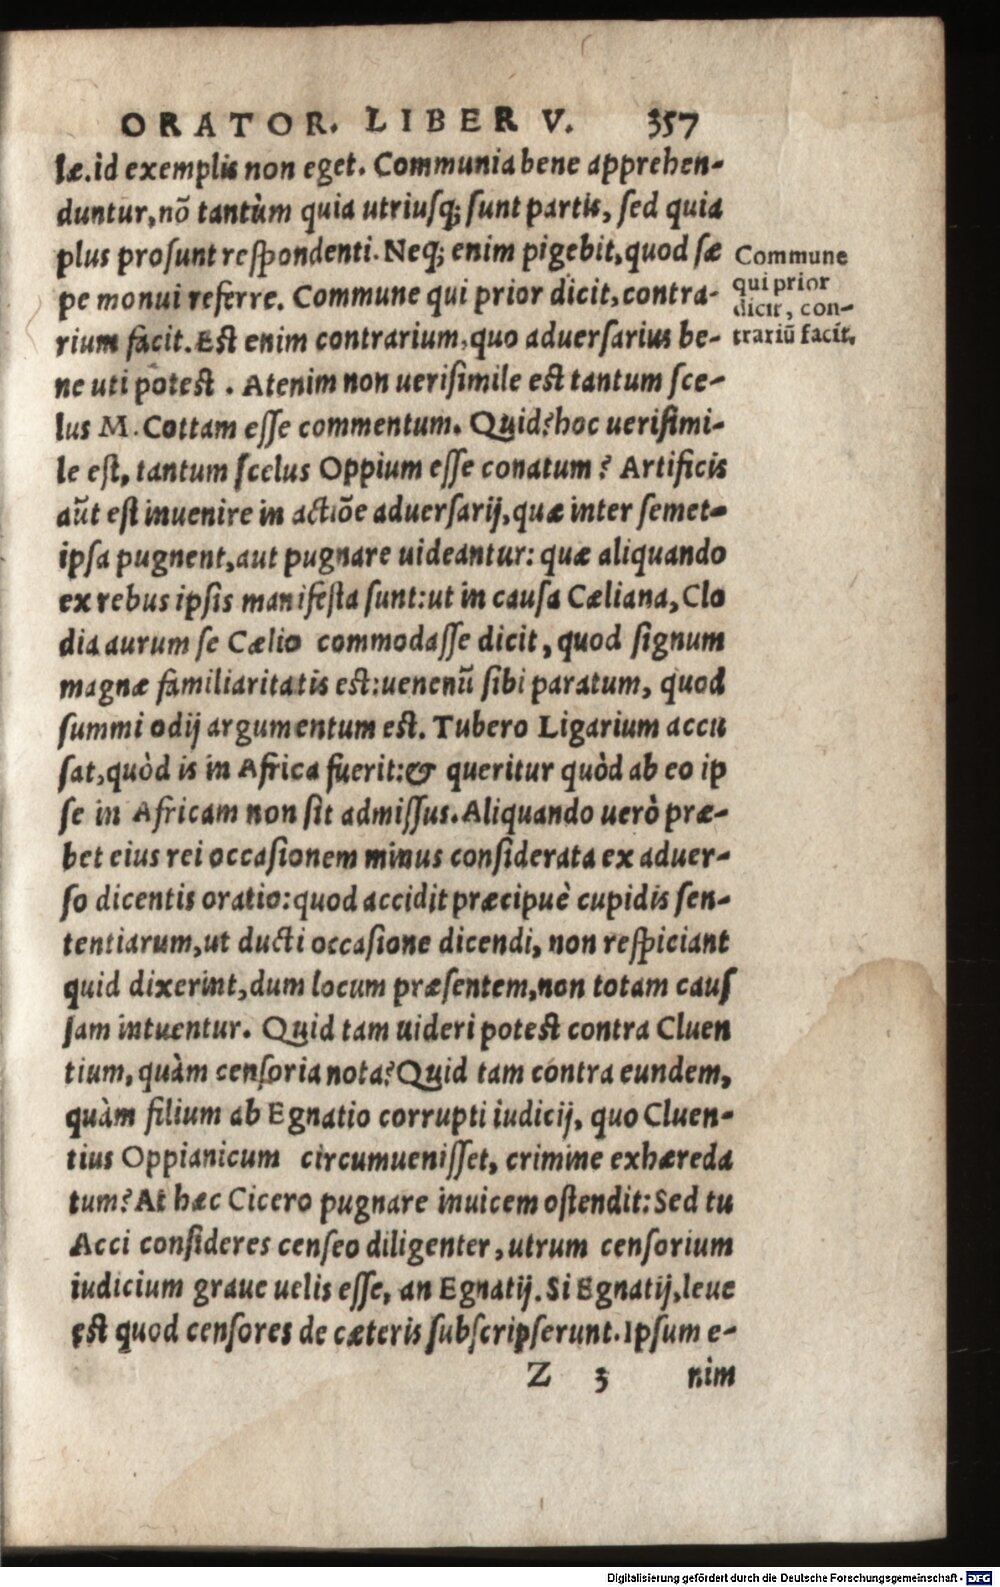 ORATOR. LIBER V. 357
læ.id exemplis non eget. Communia bene apprehen-
duntur,nõ tantùm quia utriusq; sunt partis, sed quia
plus prosunt respondenti. Neq; enim pigebit,quod sæ
pe monui referre. Commune qui prior dicit,contra-
rium facit. Est enim contrarium,quo aduersarius be-
ne uti potest . Atenim non uerisimile est tantum sce-
lus M. Cottam esse commentum. Quid?hoc uerisimi-
le est, tantum scelus Oppium esse conatum? Artificis
aũt est inuenire in actiõe aduersarij,quæ inter semet-
ipsa pugnent,aut pugnare uideantur: quæ aliquando
ex rebus ipsis manifesta sunt:ut in causa Cæliana, Clo
dia aurum se Cælio commodasse dicit, quod signum
magnæ familiaritatis est:uenenũ sibi paratum, quod
summi odij argumentum est. Tubero Ligarium accu
sat,quòd is in Africa fuerit:& queritur quòd ab eo ip
se in Africam non sit admissus. Aliquando uerò præ-
bet eius rei occasionem minus considerata ex aduer-
so dicentis oratio:quod accidit præcipuè cupidis sen-
tentiarum,ut ducti occasione dicendi, non respiciant
quid dixerint,dum locum præsentem,non totam caus
sam intuentur. Quid tam uideri potest contra Cluen
tium,quàm censoria nota?Quid tam contra eundem,
quàm filium ab Egnatio corrupti iudicij, quo Cluen-
tius Oppianicum circumuenisset, crimine exhæreda
tum? At hæc Cicero pugnare inuicem ostendit: Sed tu
Acci consideres censeo diligenter,utrum censorium
iudicium graue uelis esse, an Egnatij. Si Egnatij,leue
est quod censores de cæteris subscripserunt. Ipsum e-
Z 3 nim
Commune
qui prior
dicit, con-
trariũ facit.
Digitalisierung gefördert durch die Deutsche Forschungsgemeinschaft - DFG